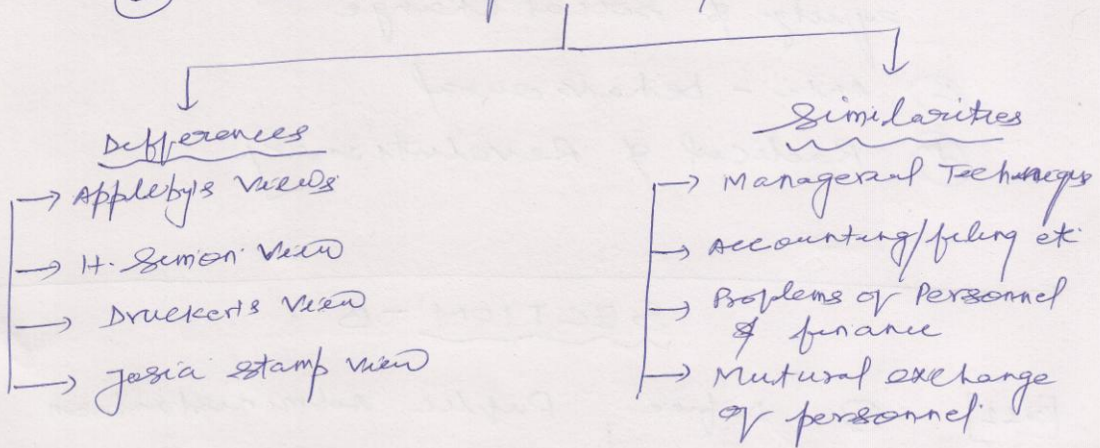 Differences
Appleby's Views
H. Simon View
Drucker's View
Josia Stamp View
Similarities
Managerial Techniques
Accounting/filing etc
Problems of Personnel
& finance
Mutural exchange
of personnel